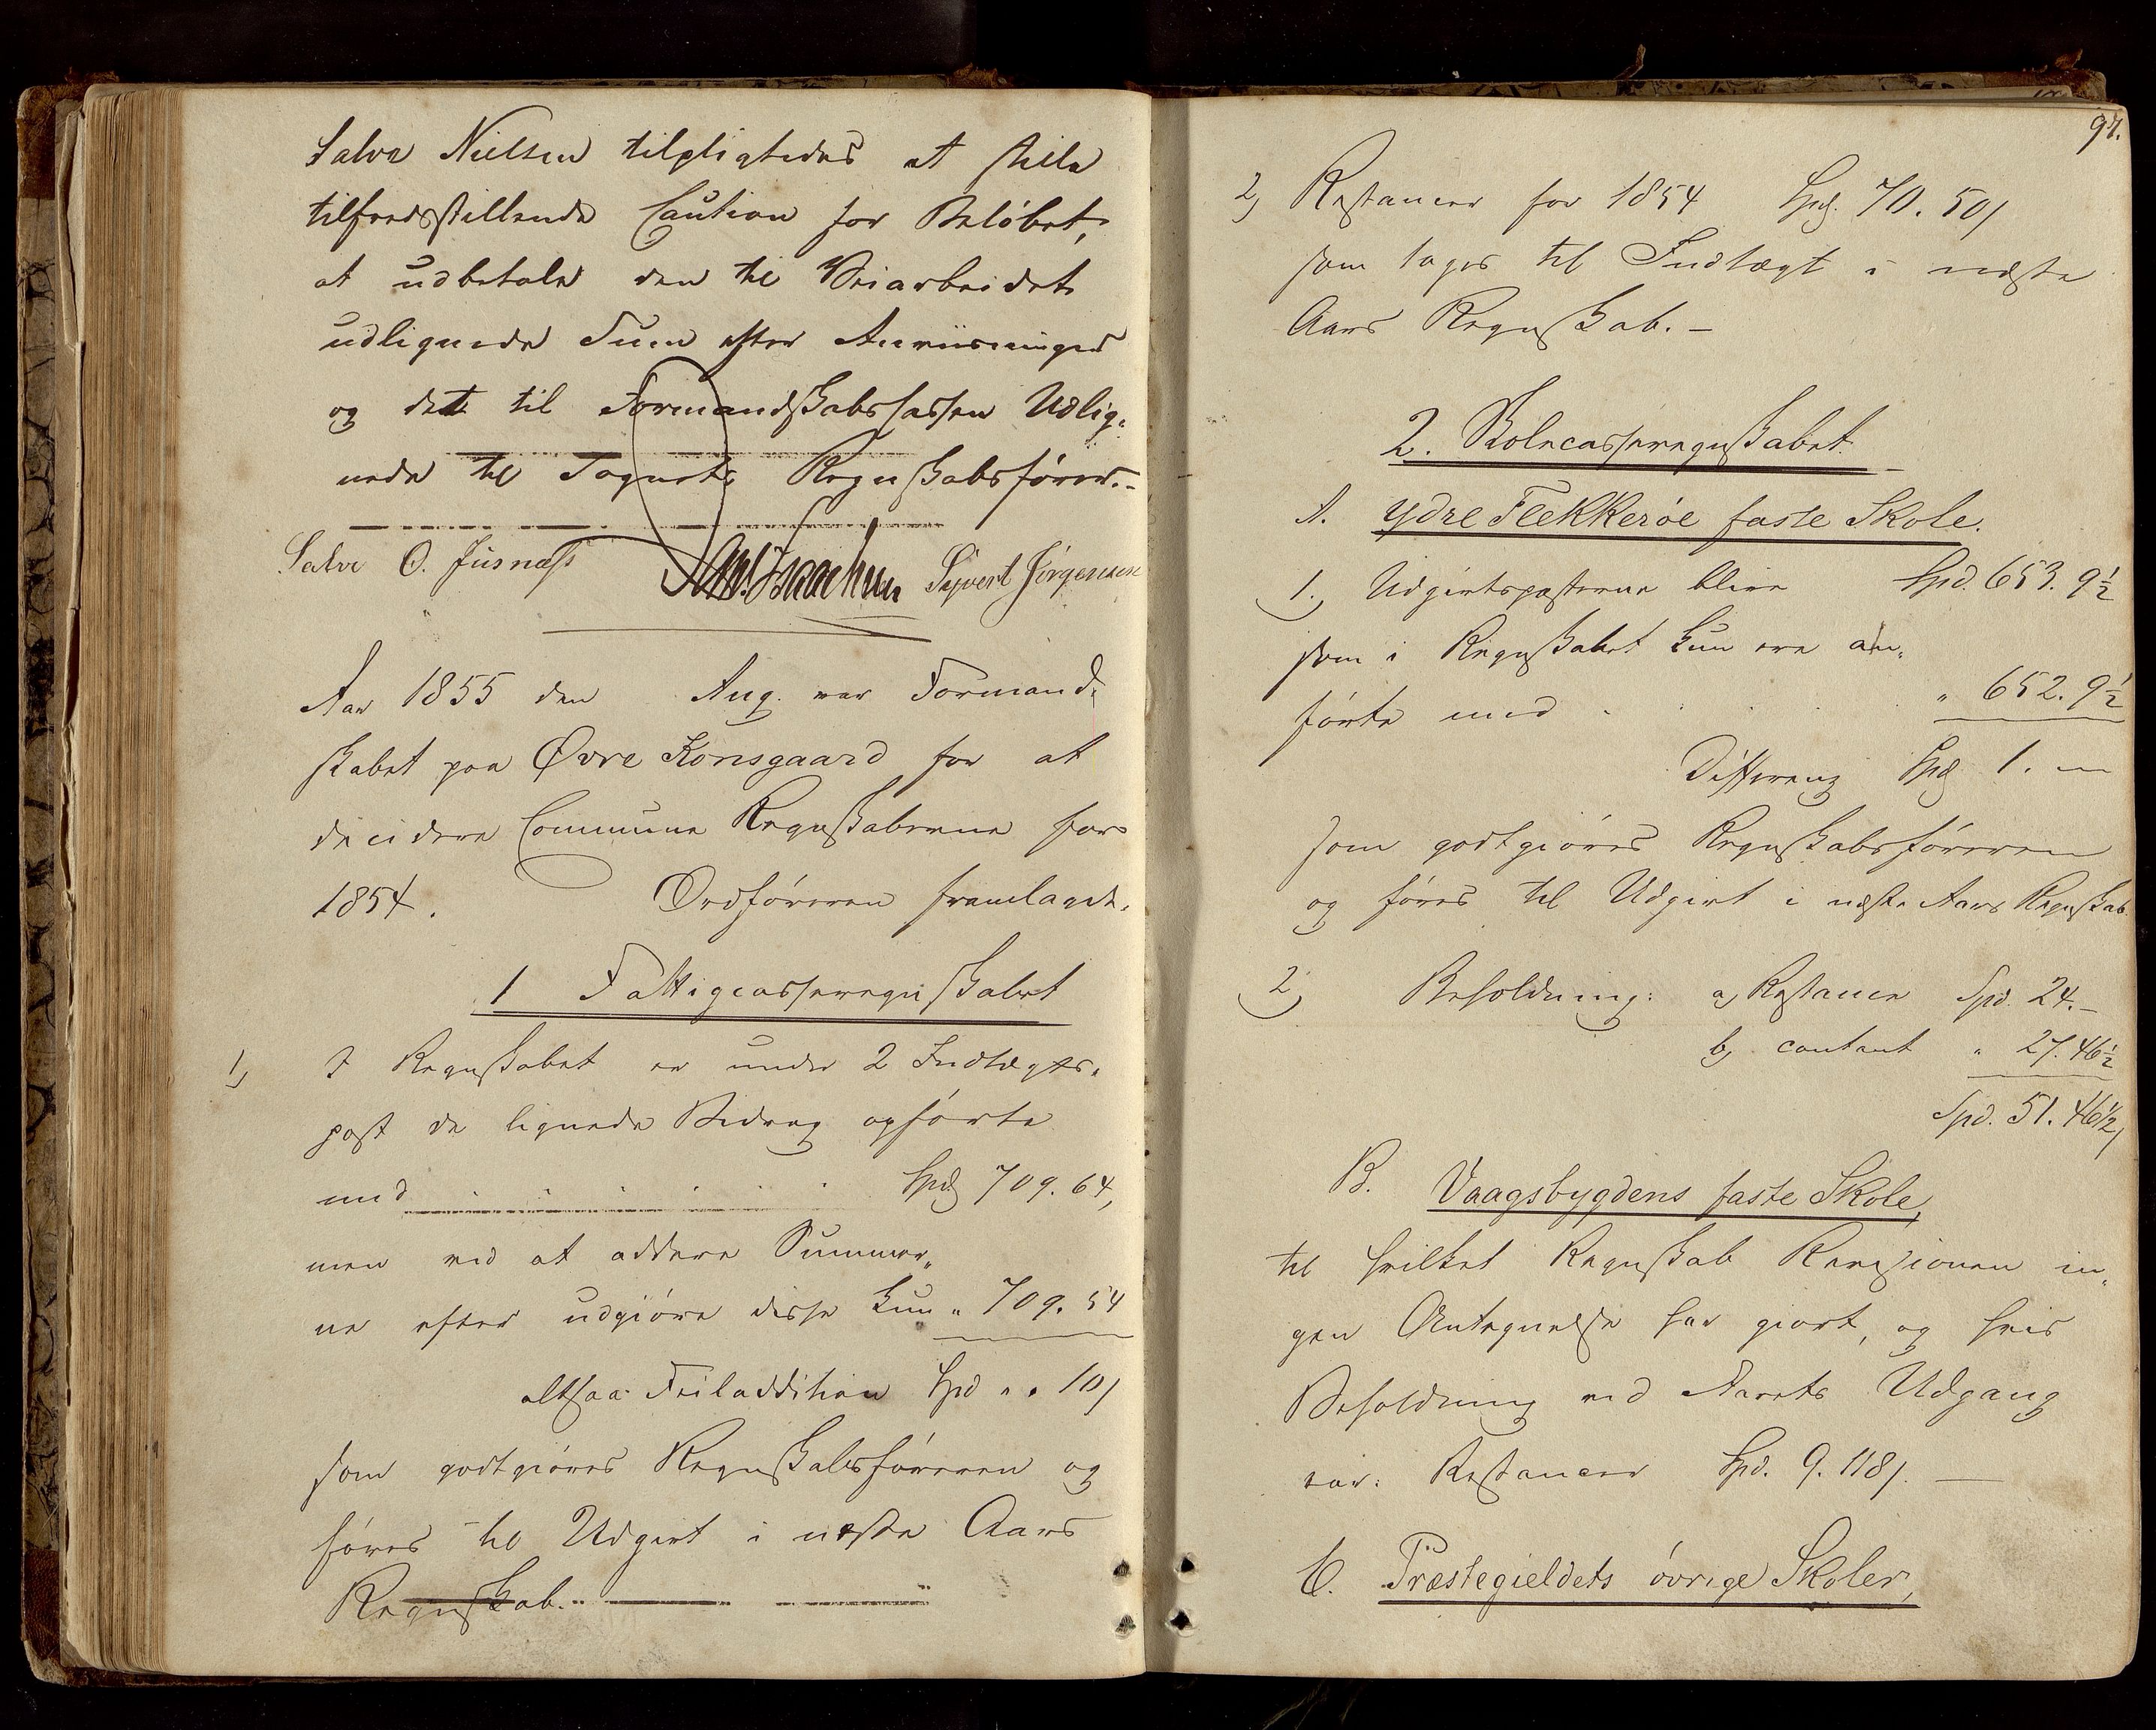 Salve Nielsen tilpligtedes at stille
tilfredsstillende Caution for Beløbet,
at udbetale den til Veiarbeidet
udlignede Sum efter Anviisninger
og det til Formandskabscassen Udlig-
nede til Sognets Regnskabsfører.-
Salve O. Fiisnæss Isaachsen Sÿvert Jörgensen
Aar 1855 den Aug. var Formand-
skabet paa Øvre Konsgaard for at
decidere Commune Regnskaberne for
1854. Ordføreren fremlagde.
1 Fattigcasseregnskabet
1, I Regnskabet er under 2 Indtægts-
post de lignede Bidrag opførte
med . . . . . . Spd 709. 64,
men ved at addere Summer-
ne efter udgjøre disse kun „ 709. 54
altsaa Feiladdition Spd „ „ 10/
som godtgiøres Regnskabsføreren og
føres til Udgivt i næste Aars
Regnskab.
97.
2, Restancer for 1854 Spd. 70. 50/
som tages til Indtægt i næste
Aars Regnskab. -
2. Skolecasseregnskabet.
A. Ydre Flekkeröe faste Skole.
1., Udgivtsposterne blive Spd. 653. 9½
som i Regnskabet kun ere an-
førte med . . . „ 652. 9½
Differenz Spd 1. "
som godtgiøres Regnskabsføreren
og føres til Udgivt i næste Aars Regnskab
2, Beholdning: a, Restance Spd. 24. -
b, contant „ 27. 46½
Spd. 51. 46½/
B. Vaagsbygdens faste Skole,
til hvilket Regnskab Revisionen in-
gen Antegnelse har giort, og hvis
Beholdning ved Aarets Udgang
var: Restancer Spd. 9. 118/. —
C. Præstegieldets övrige Skoler,